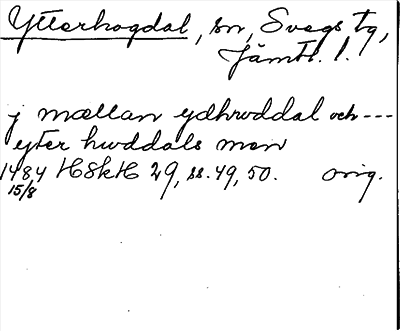 Ytterhogdal, sn, Svegs tg,
Jämtl. l.
j mællan ydhroddal och ---
yter hwddals men
1484 HSkH 29, ss. 49, 50. orig.
15/8